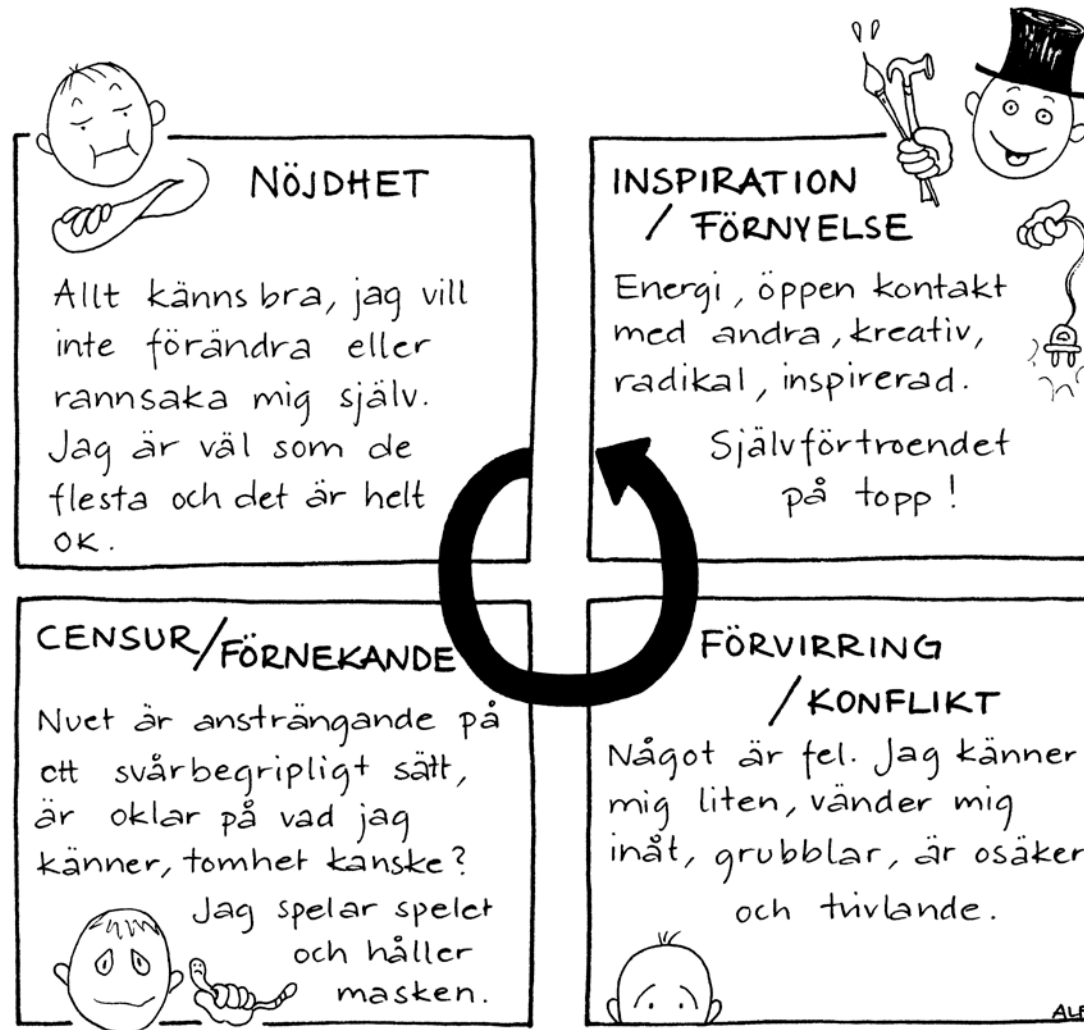 NÖJDHET
Allt känns bra, jag vill
inte förändra eller
rannsaka mig själv.
Jag är väl som de
flesta och det är helt
OK.
INSPIRATION
/ FÖRNYELSE
Energi, öppen kontakt
med andra, kreativ,
radikal, inspirerad.
Självförtroendet
på topp!
CENSUR/FÖRNEKANDE
Nuet är ansträngande på
ett svårbegripligt sätt,
är oklar på vad jag
känner, tomhet kanske?
Jag spelar spelet
och håller
masken.
FÖRVIRRING
/KONFLIKT
Något är fel. Jag känner
mig liten, vänder mig
inåt, grubblar, är osäker
och tvivlande.